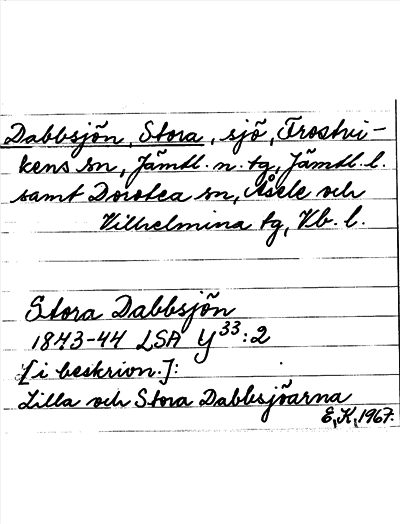 Dabbsjön, Stora, sjö, Frostvi-
kens sn, Jämtl. n. tg, Jämtl. l.
samt Dorotea sn, Åsele och
Vilhelmina tg, Vb. l.
Stora Dabbsjön
1843-44 LSA Y33:2
[i beskrivn.]:
Lilla och Stora Dabbsjöarna
E.K. 1967.